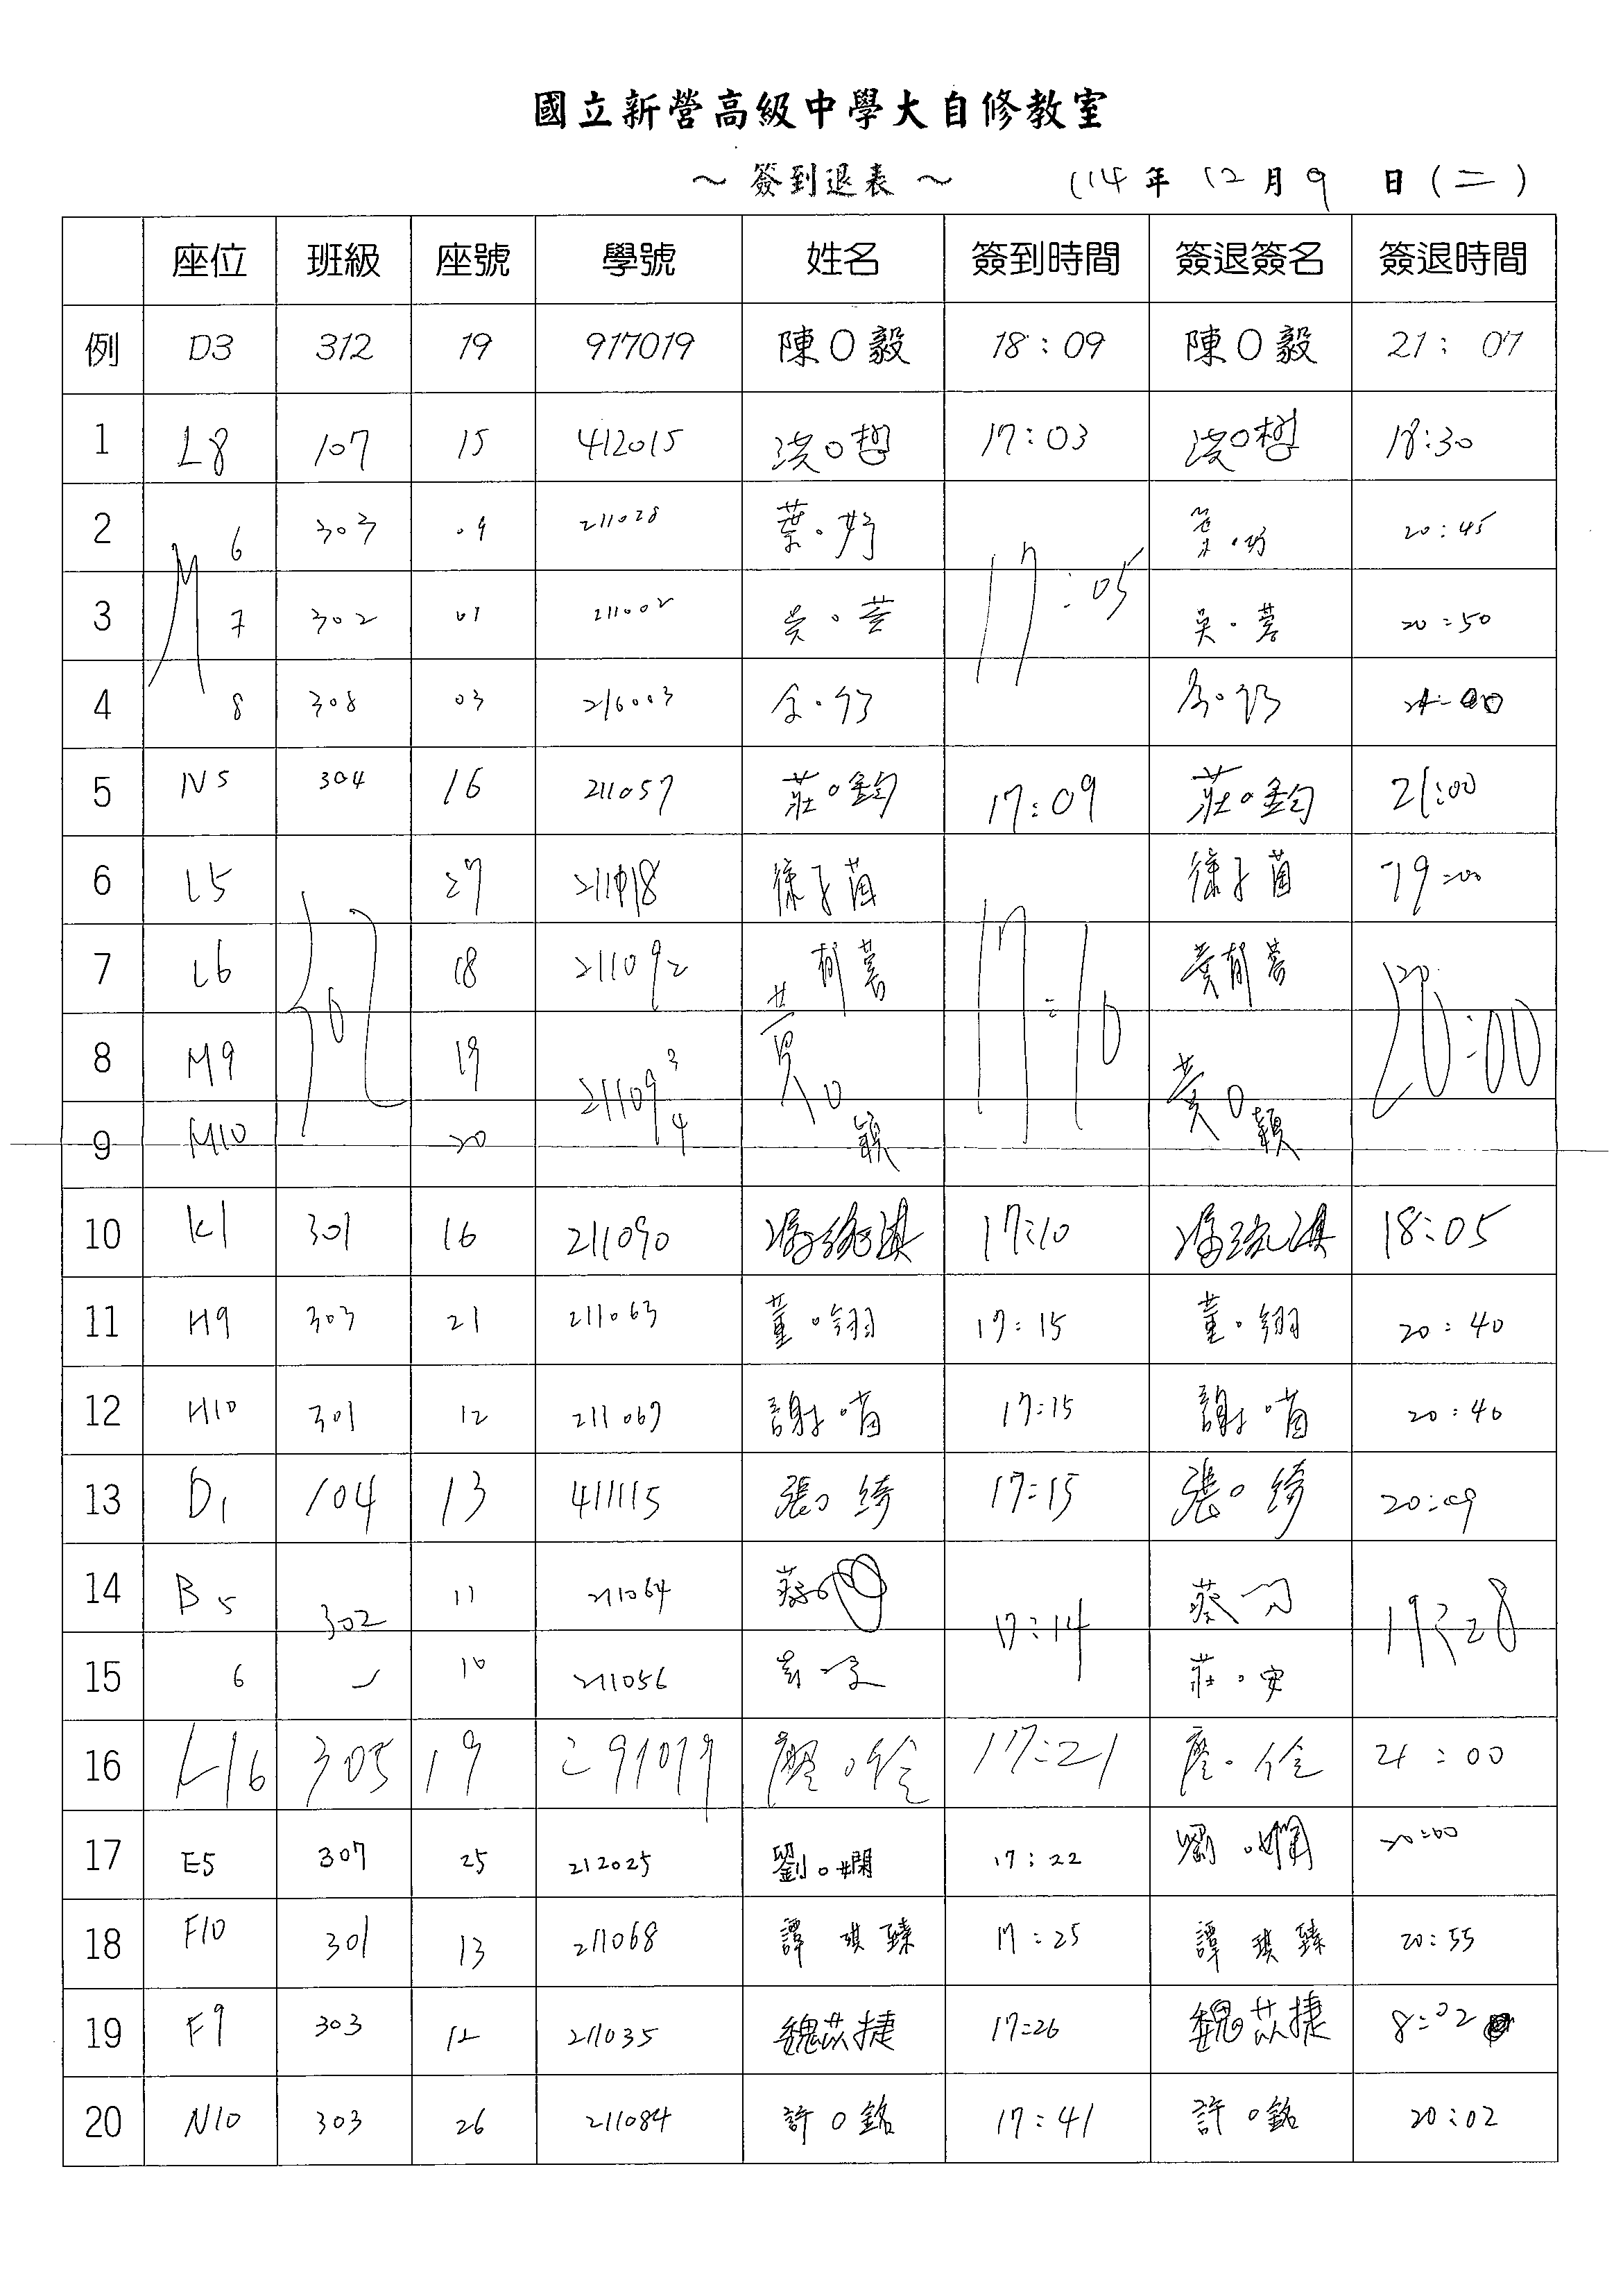 國立新營高級中學大自修教室
～ 簽到退表 ～ 114 年 12 月 9 日 (二)
座位 班級 座號 學號 姓名 簽到時間 簽退簽名 簽退時間
例 D3 312 19 917019 陳O毅 18:09 陳O毅 21:07
1 L8 107 15 412015 洪O哲 17:03 洪O哲 18:30
2 M 6 303 09 211028 葉 17:05 20:45
3 7 302 01 211002 吳 吳 20:50
4 8 308 03 216003
5 N5 304 16 211057 莊O鈞 17:09 莊O鈞 21:00
6 L5 302 27 17:10 19:00
7 L6 18 211092 黃郁蓁 20:00
8 M9 19 211093 黃O穎 黃O穎
9 M10 20 4
10 K1 301 16 211090 17:10 18:05
11 H9 303 21 211063 董O翎 17:15 董O翎 20:40
12 H10 301 12 211067 謝 17:15 謝 20:40
13 D1 104 13 411115 張O綺 17:15 張O綺 20:09
14 B5 302 11 211064 蔡 17:14 蔡 19:28
15 6 10 211056 莊
16 L16 305 19 291019 廖O伶 17:21 廖O伶 21:00
17 E5 307 25 212025 劉O嫻 17:22 劉O嫻 20:00
18 F10 301 13 211068 譚琪臻 17:25 譚琪臻 20:55
19 F9 303 12 211035 魏苡捷 17:26 魏苡捷 8:02
20 N10 303 26 211084 許O銘 17:41 許O銘 20:02